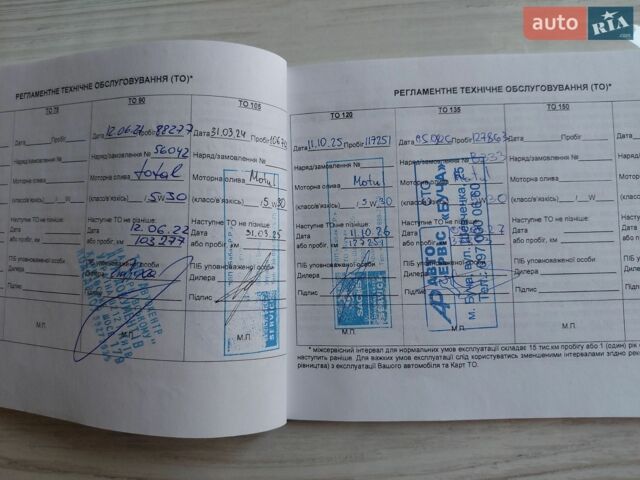 auto RIA .com
РЕГЛАМЕНТНЕ ТЕХНІЧНЕ ОБСЛУГОВУВАННЯ (ТО)*
ТО 75 ТО 90 ТО 105
Дата Пробіг Дата 12.06.21 Пробіг 88277 Дата 31.03.24 Пробіг
Наряд/замовлення № Наряд/замовлення № 56042 Наряд/замовлення №
Моторна олива Моторна олива total Моторна олива Motul
(класс/в'язкість) (класс/в'язкість) 5W30 (класс/в'язкість) 5W30
Наступне ТО не пізніше: Наступне ТО не пізніше: Наступне ТО не пізніше:
Дата Дата 12.06.22 Дата 31.03.25
або пробіг, км або пробіг, км 103277 або пробіг, км
ПІБ уповноваженої особи ПІБ уповноваженої особи
Дилера Дилера Дилера
Підпис Підпис
М.П. М.П. М.П.
РЕГЛАМЕНТНЕ ТЕХНІЧНЕ ОБСЛУГОВУВАННЯ (ТО)*
ТО 120 ТО 135 ТО 150
Дата 11.10.25 Пробіг 117251 Дата Пробіг 127863 Дата Пробіг
Наряд/замовлення № Наряд/замовлення № Наряд/замовлення №
Моторна олива Motul Моторна олива Моторна олива
(класс/в'язкість) 5W30 (класс/в'язкість) (класс/в'язкість)
Наступне ТО не пізніше: Наступне ТО не пізніше:
Дата 11.10.26 Дата
або пробіг, км або пробіг, км
ПІБ уповноваженої особи ПІБ уповноваженої особи
Дилера Дилера
Підпис Підпис
М.П. М.П.
СТО
АВТО
СЕРВІС «БУЧА»
м. Буча, вул. Шевченка,
SERVICE
* міжсервісний інтервал для нормальних умов експлуатації складає 15 тис.км пробігу або 1 (один) рік
наступить раніше. Для важких умов експлуатації слід користуватись зменшеними інтервалами згідно
рівництва) з експлуатації Вашого автомобіля та Карт ТО.